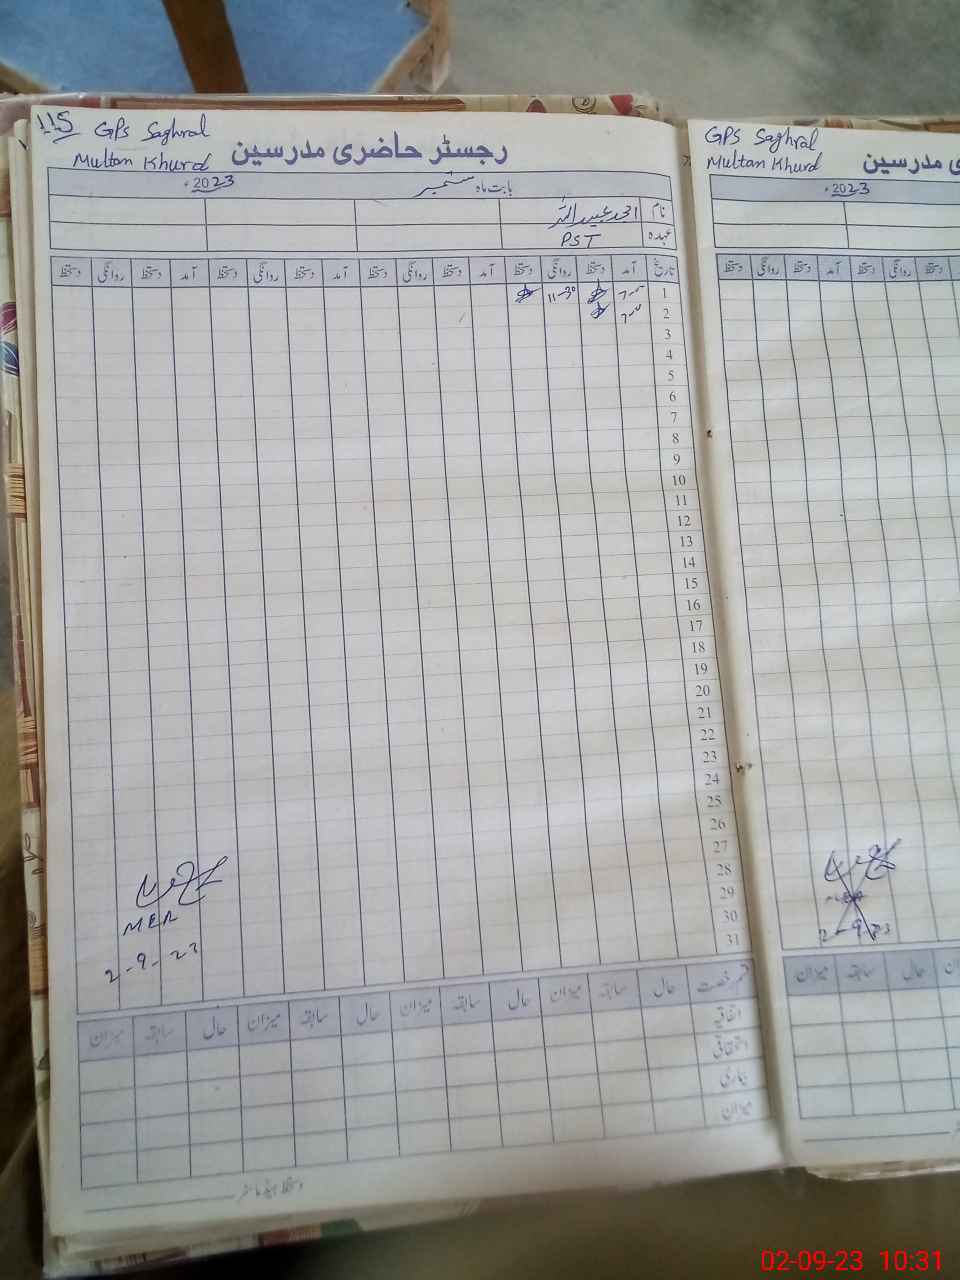 115 GPS Saghral
Multan Khurd
رجسٹر حاضری مدرسین
بابت ماہ ستمبر 2023ء
نام
عہدہ PST
تاریخ آمد دستخط روانگی دستخط آمد دستخط روانگی دستخط آمد دستخط روانگی دستخط آمد دستخط روانگی دستخط
1 11-30
2
3
4
5
6
7
8
9
10
11
12
13
14
15
16
17
18
19
20
21
22
23
24
25
26
27
28
29
30
31
MER
2-9-23
قسم رخصت حال سابقہ میزان حال سابقہ میزان حال سابقہ میزان حال سابقہ میزان
اتفاقیہ
استحقاقی
بیماری
میزان
دستخط ہیڈ ماسٹر
GPS Saghral
Multan Khurd
ی مدرسین
2023ء
دستخط روانگی دستخط آمد دستخط روانگی دستخط
2-9-23
میزان سابقہ حال
02-09-23 10:31